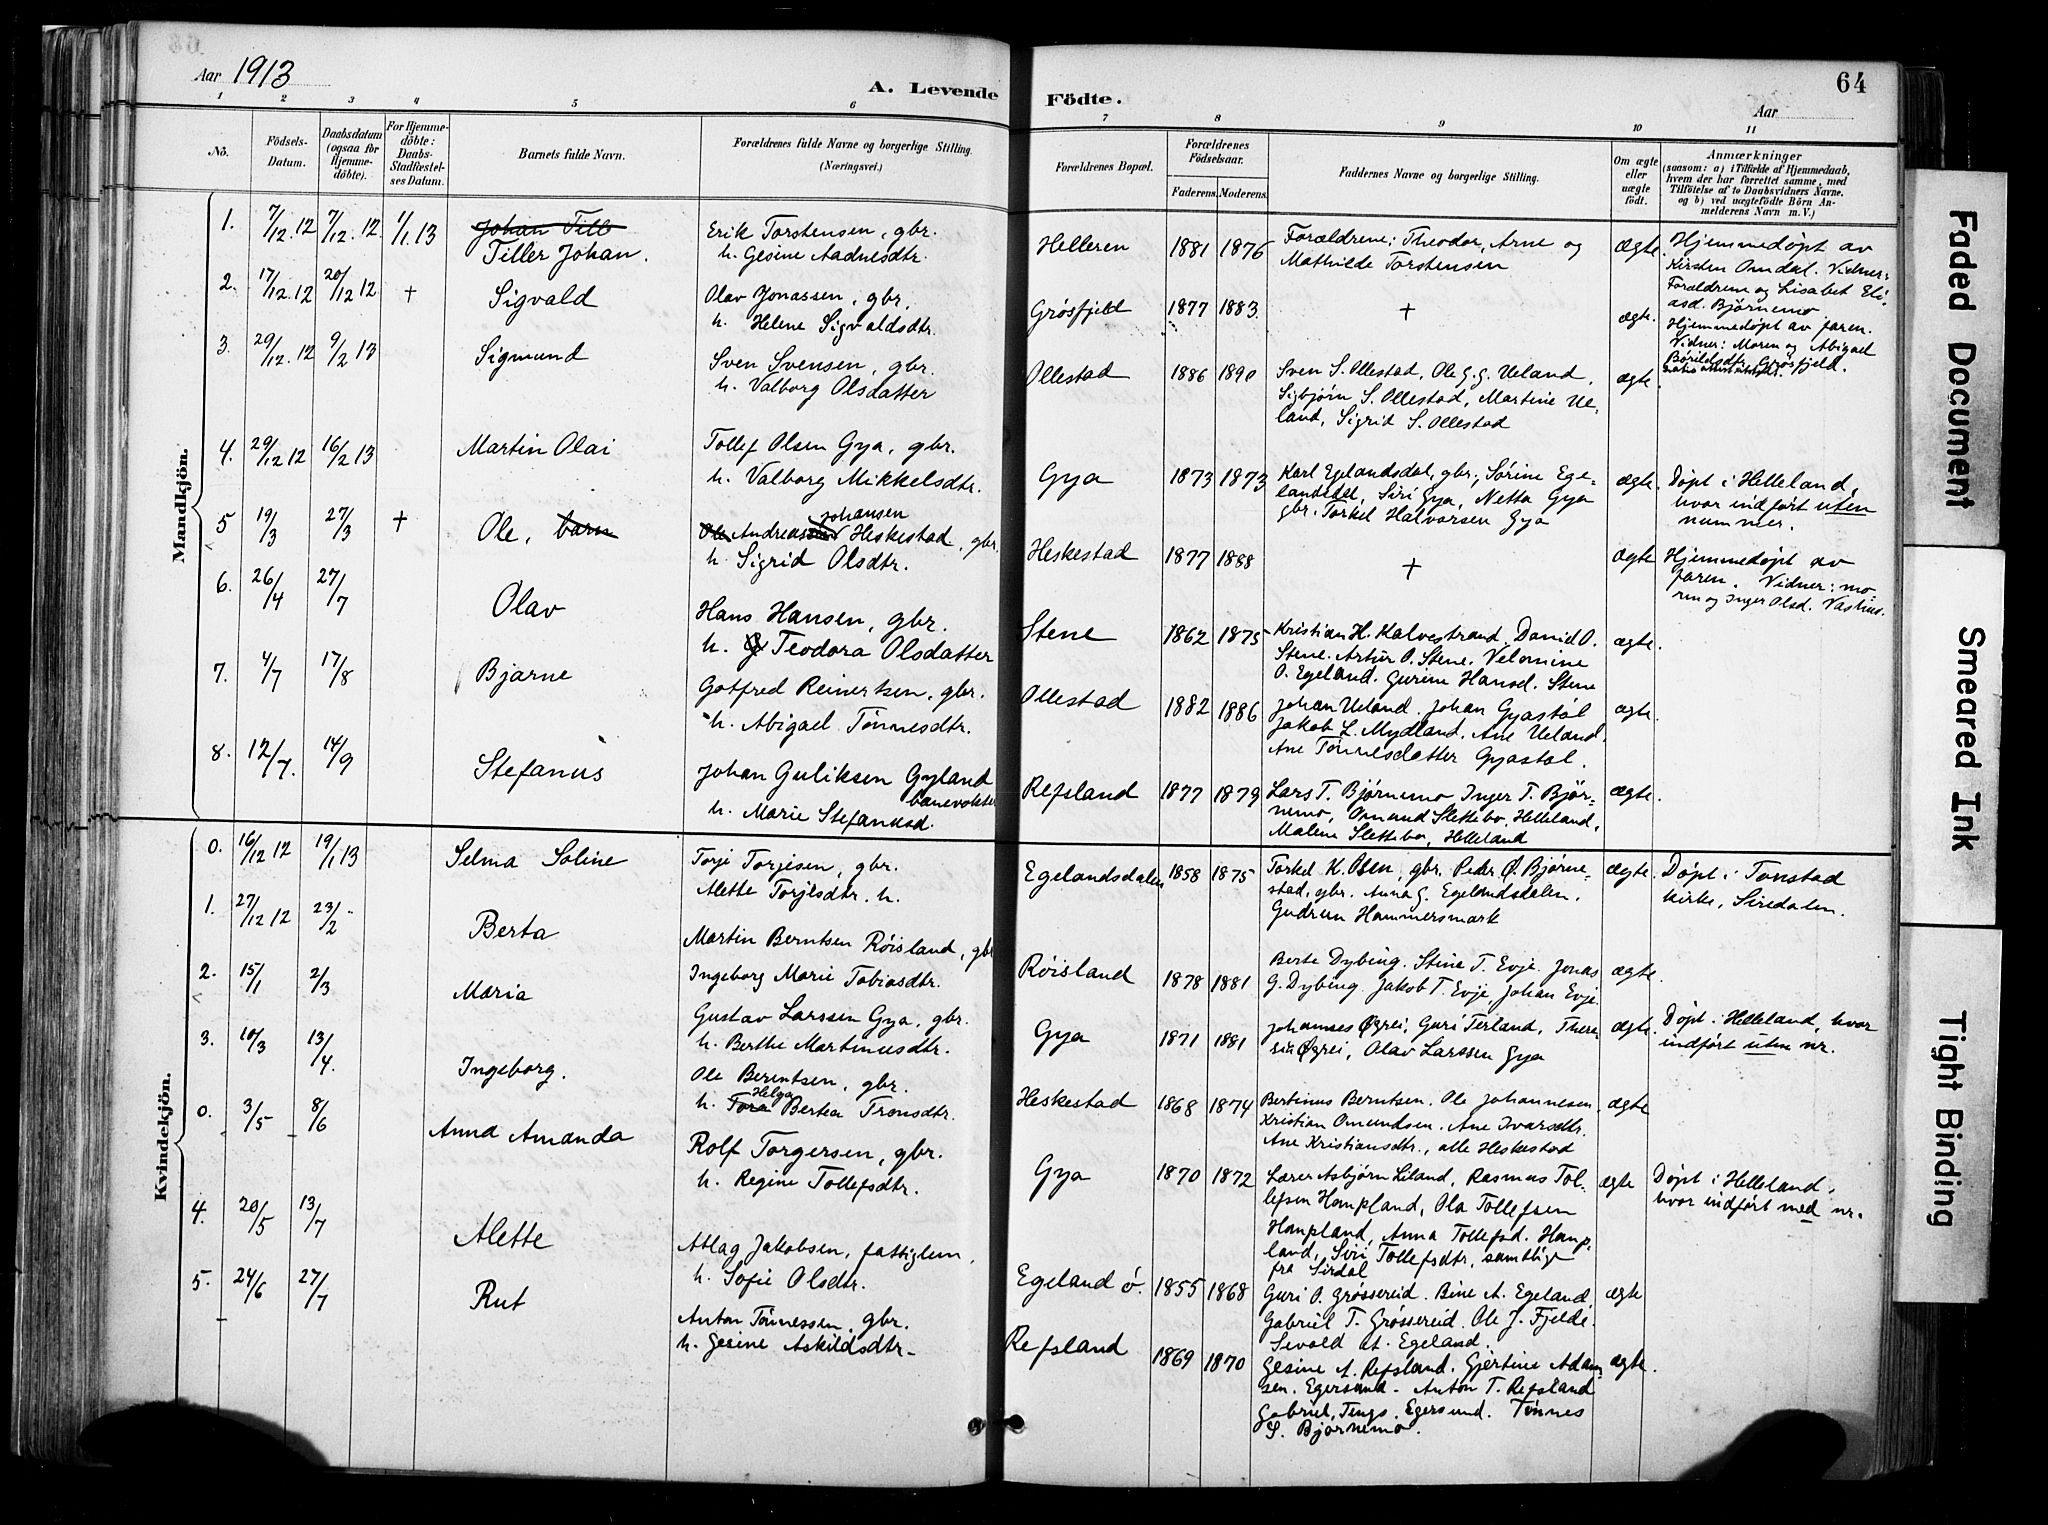 Aar 1913
A. Levende Födte.
64
Aar
1 2 3 4 5 6 7 8 9 10 11
No.
Födsels-
Datum.
Daabsdatum
(ogsaa for
Hjemme-
döbte).
For Hjemme-
döbte:
Daabs-
Stadfæstel-
ses Datum.
Barnets fulde Navn.
Forældrenes fulde Navne og borgerlige Stilling.
(Næringsvei.)
Forældrenes Bopæl.
Forældrenes
Födselsaar.
Faderens. Moderens.
Faddernes Navne og borgerlige Stilling.
Om ægte
eller
uægte
födt.
Anmærkninger
(saasom: a) i Tilfælde af Hjemmedaab,
hvem der har forrettet samme, med
Tilföielse af to Daabsvidners Navne.
og b) ved uægtefödte Börn An-
melderens Navn m. V.)
Mandkjön.
1. 7/12.12 7/12.12 1/1.13 Johan Till
Tiller Johan.
Erik Torstensen, gbr.
h. Gesine Aadnesdtr.
Helleren 1881 1876
Forældrene; Theodor, Arne og
Mathilde Torstensen
ægte.
Hjemmedøpt av
Kirsten Omdal. Vidner:
Forældrene og Lisabet Eli-
asd. Bjørnemo
2. 17/12.12 20/12 12 + Sigvald
Olav Jonassen, gbr.
h. Helene Sigvaldsdtr.
Grøsfjeld 1877 1883. + ægte.
Hjemmedøpt av faren.
Vidner: Moren og Abigael
Grøsfjeld.
3. 29/12.12 9/2 13 Sigmund
Sven Svensen, gbr.
h. Valborg Olsdatter
Ollestad 1886 1890
Sven S. Ollestad, Ole G. G. Ueland,
Sigbjørn S. Ollestad, Martine Ue-
land, Sigrid S. Ollestad
ægte.
4. 29/12 12 16/2 13 Martin Olai
Tollef Olsen Gya, gbr.
h. Valborg Mikkelsdtr.
Gya 1873 1873
Karl Egelandsdal, gbr., Sørine Ege-
landsdal, Siri Gya, Netta Gya
gbr. Torkel Halvorsen Gya
ægte.
Døpt i Helleland,
hvor indført uten
nummer.
5 19/3 27/3 + Ole, barn
Ole Andreas Johansen Heskestad, gbr.
h. Sigrid Olsdtr.
Heskestad 1877 1888 + ægte
Hjemmedøpt av
faren. Vidner: mo-
ren og Inger Olsd. Vashus.
6. 26/4 27/7 Olav
Hans Hansen, gbr.
h. Teodora Olsdatter
Stene 1862 1875
Kristian H. Kalvestrand, David O.
Stene. Artur O. Stene. Velomine
O. Egeland. Gurine Hansd. Stene
ægte.
7. 4/7 17/8 Bjarne
Gotfred Reinertsen, gbr.
h. Abigael Tønnesdtr.
Ollestad 1882 1886
Johan Ueland. Johan Gyastøl
Jakob L. Mydland. Ane Ueland.
Ane Tønnesdatter Gyastøl.
ægte.
8. 12/7. 14/9 Stefanus
Johan Guliksen Gyland
banevokter
h. Marie Stefanusd.
Refsland 1877 1879
Lars T. Bjørnemo Inger T. Bjør-
nemo, Omund Slettebo, Helleland,
Malene Slettebo, Helleland
ægte.
Kvindekjön.
0. 16/12 12 19/1 13 Selma Soline
Torje Torjesen, gbr.
Alette Torjesdtr. h.
Egelandsdalen 1858 1875
Torkel K. Olsen, gbr. Peder Ø. Bjørne-
stad, gbr. Anna G. Egelandsdalen.
Gudrun Hammersmark
ægte.
Døpt i Tonstad
kirke, Siredalen.
1. 27/12 12 23/2 Berta
Martin Berntsen Røisland, gbr
Ingeborg Marie Tobiasdtr.
Røisland 1878 1881
Berte Dybing. Stine T. Evje. Jonas
G. Dybing. Jakob T. Evje, Johan Evje.
ægte.
2. 15/1 2/3 Maria
Gustav Larssen Gya, gbr.
h. Berthe Martinusdtr.
Gya 1871 1881
Johannes Øgrei, Guri Terland, There-
sie Øgrei, Olav Larssen Gya
ægte.
Døpt i Helleland, hvor
indført uten nr.
3. 10/3 13/4. Ingeborg.
Ole Berentsen, gbr.
Helga
h. Tora Bertea Tronsdtr.
Heskestad 1868 1874
Bertinus Berntsen. Ole Johannesen.
Kristian Omundsen. Ane Ivarsdtr.
Ane Kristiansdtr., alle Heskestad
ægte
0. 3/5 8/6 Anna Amanda
Rolf Torgersen, gbr.
h. Regine Tollefsdtr.
Gya 1870 1872
Lærer Asbjørn Liland, Rasmus Tol-
lefsen Hompland, Ola Tollefsen
Hompland, Anna Tollefsd. Homp-
land, Siri Tollefsdtr, samtlige
fra Sirdal
ægte
Døpt i Helleland,
hvor indført med nr.
4. 20/5 13/7 Alette
Atlag Jakobsen, fattiglem,
h. Sofie Olsdtr.
Egeland ø. 1855 1868
Guri O. Grøssereid. Bine A. Egeland.
Gabriel T. Grøssereid. Ole J. Fjelde.
Sevald At. Egeland.
ægte
5. 24/6 27/7 Rut
Anton Tønnessen, gbr.
h. Gesine Askildsdtr.
Refsland 1869 1870
Gesine A. Refsland. Gjertine Adam-
sen. Egersund. Anton T. Refsland
Gabriel Tengs. Egersund. Tønnes
S. Bjørnemo.
ægte.
Faded Document
Smeared Ink
Tight Binding